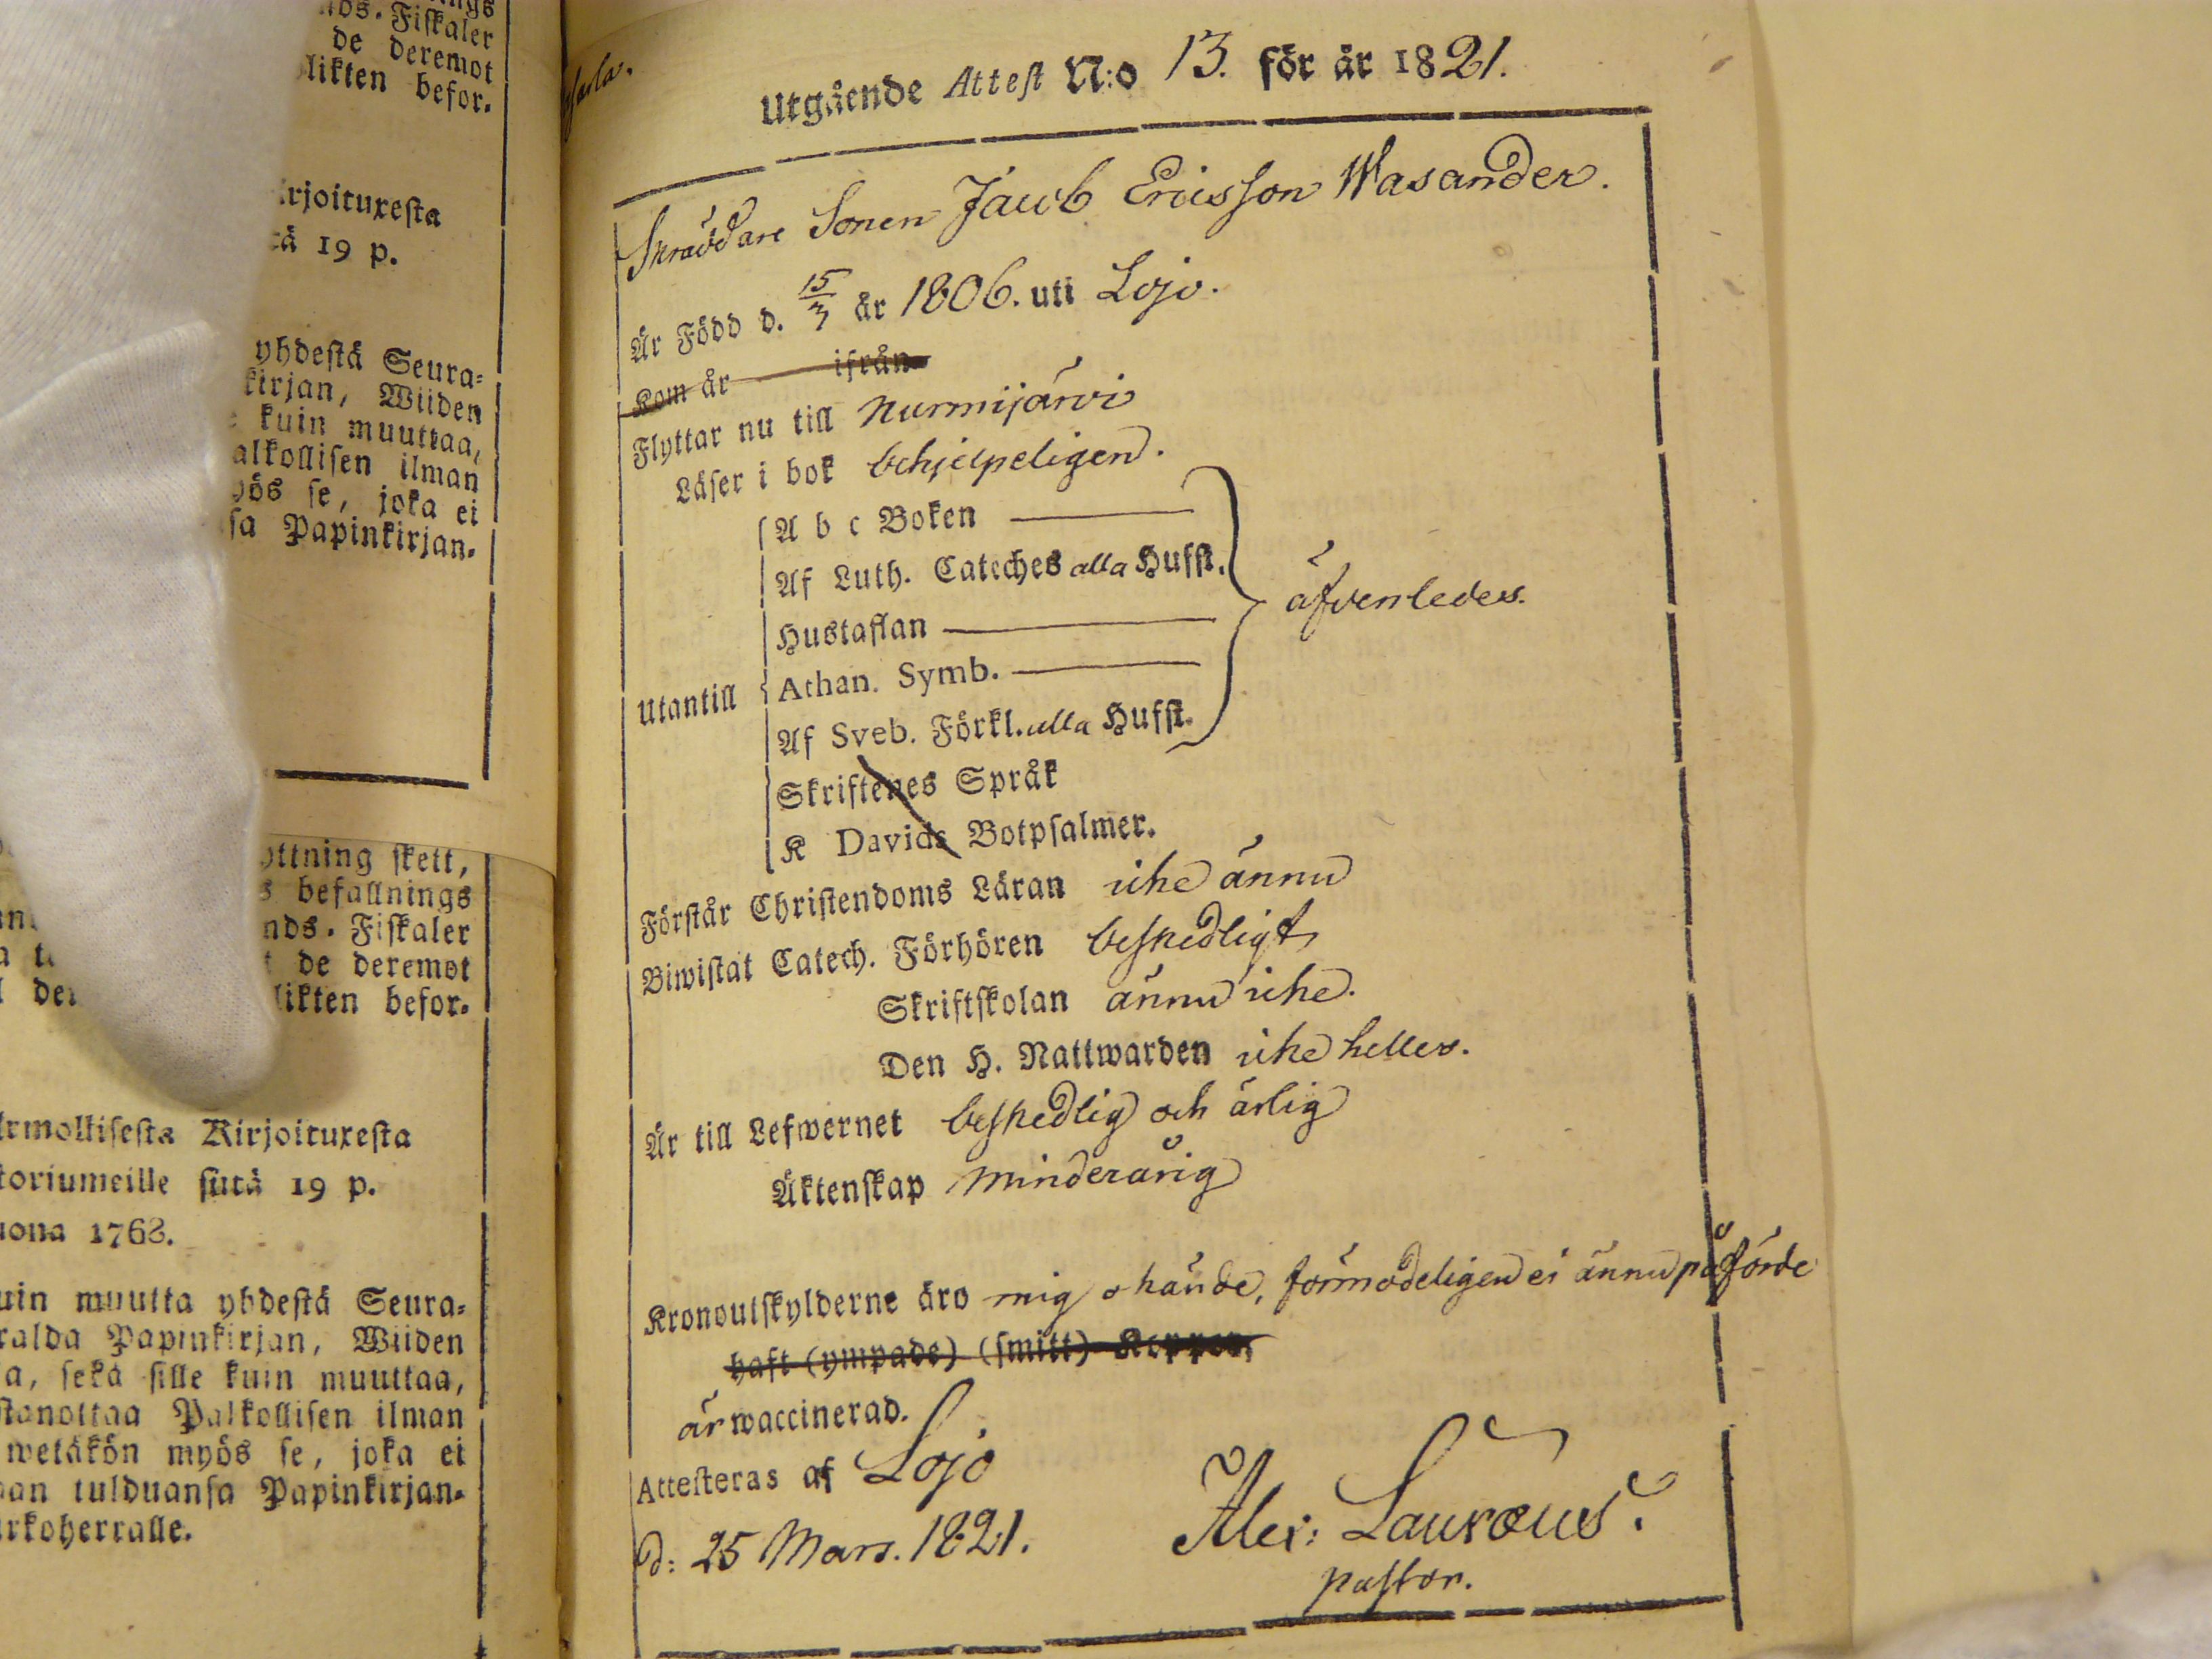 nds. Fiskaler
de deremot
likten befor.
rjoituxesta
tä 19 p.
yhdestä Seura-
kirjan, Wiiden
kuin muuttaa,
alkollisen ilman
yös se, joka ei
sa Papinkirjan-
yttning skett,
s befallnings
nds. Fiskaler
t de deremot
likten befor.
Armollisesta Kirjoituxesta
toriumeille siitä 19 p.
uona 1763.
uin muutta yhdestä Seura-
ralda Papinkirjan, Wiiden
a, sekä sille kuin muuttaa,
stanottaa Palkollisen ilman
wetäkön myös se, joka ei
aan tulduansa Papinkirjan-
irkoherralle.
Utgående Attest N:o 13. för år 1821.
Skräddare Sonen Jacob Ericsson Wasander.
Är Född d. 15/3 år 1806. uti Lojo.
Kom år ifrån
Flyttar nu till Nurmijärvi
Läser i bok behjelpeligen.
A b c Boken
Af Luth. Cateches alla Hufst.
Hustaflan
äfvenledes.
Utantill
Athan. Symb.
Af Sveb. Förkl. alla Hufst.
Skriftenes Språk
K Davids Botpsalmer.
Förstår Christendoms Läran icke ännu
Biwistat Catech. Förhören beskedligt
Skriftskolan ännu icke.
Den H. Nattwarden icke heller.
Är till Lefwernet beskedlig och ärlig
Äktenskap minderårig
Kronoutskylderne äro mig okände, förmodeligen ei ännu påförde
haft (ympade) (smitt) Koppor,
är waccinerad.
Attesteras af Lojo
d: 25 Mars. 1821.
Alex: Lauræus.
pastor.